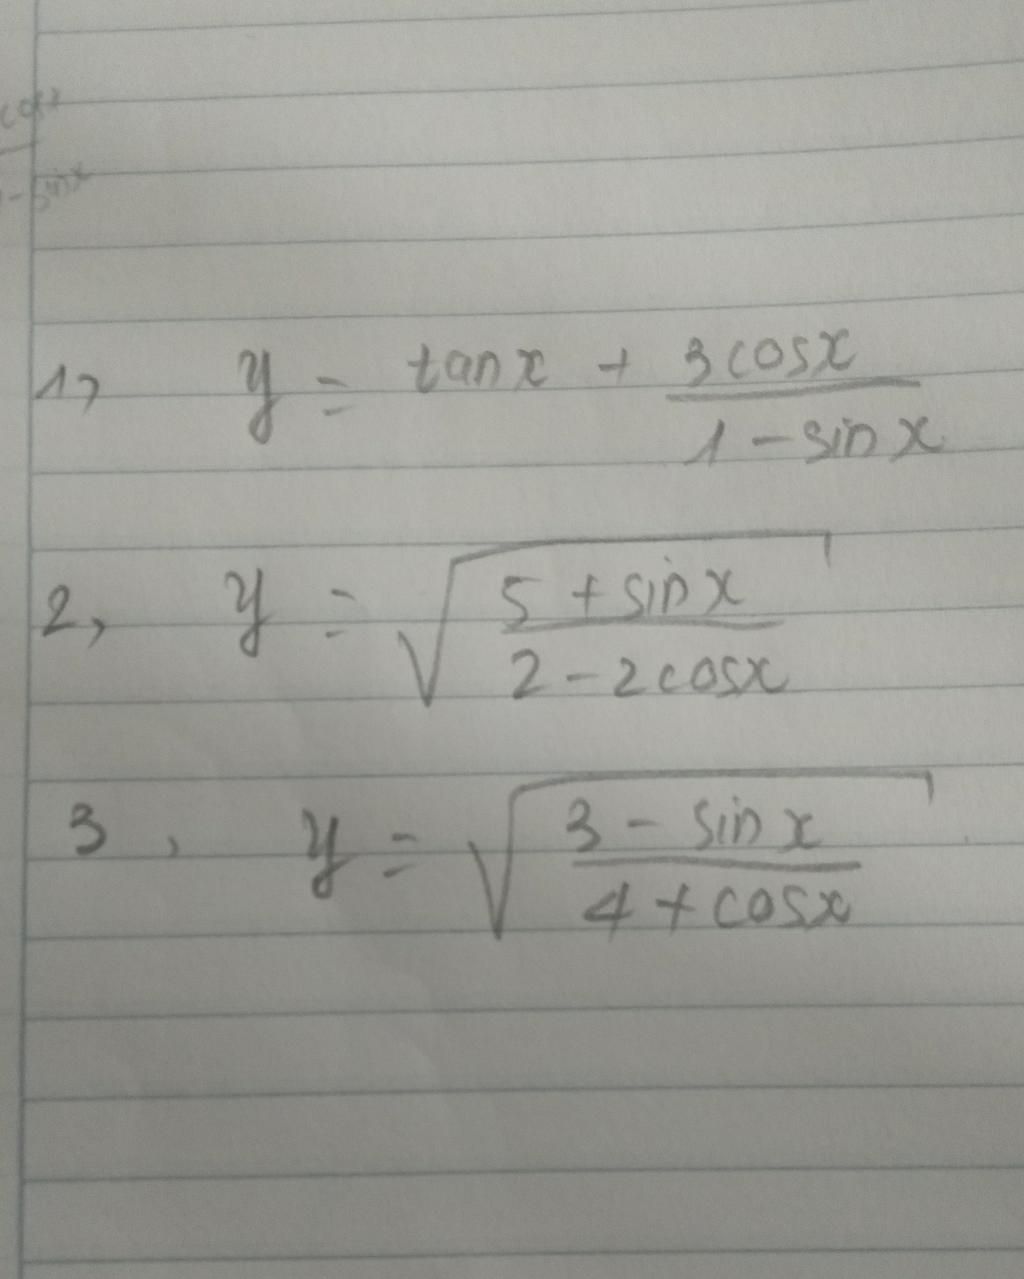 cosx
-sinx
1, y = tanx + 3cosx / 1 - sinx
2, y = √(5 + sinx / 2 - 2cosx)
3, y = √(3 - sinx / 4 + cosx)